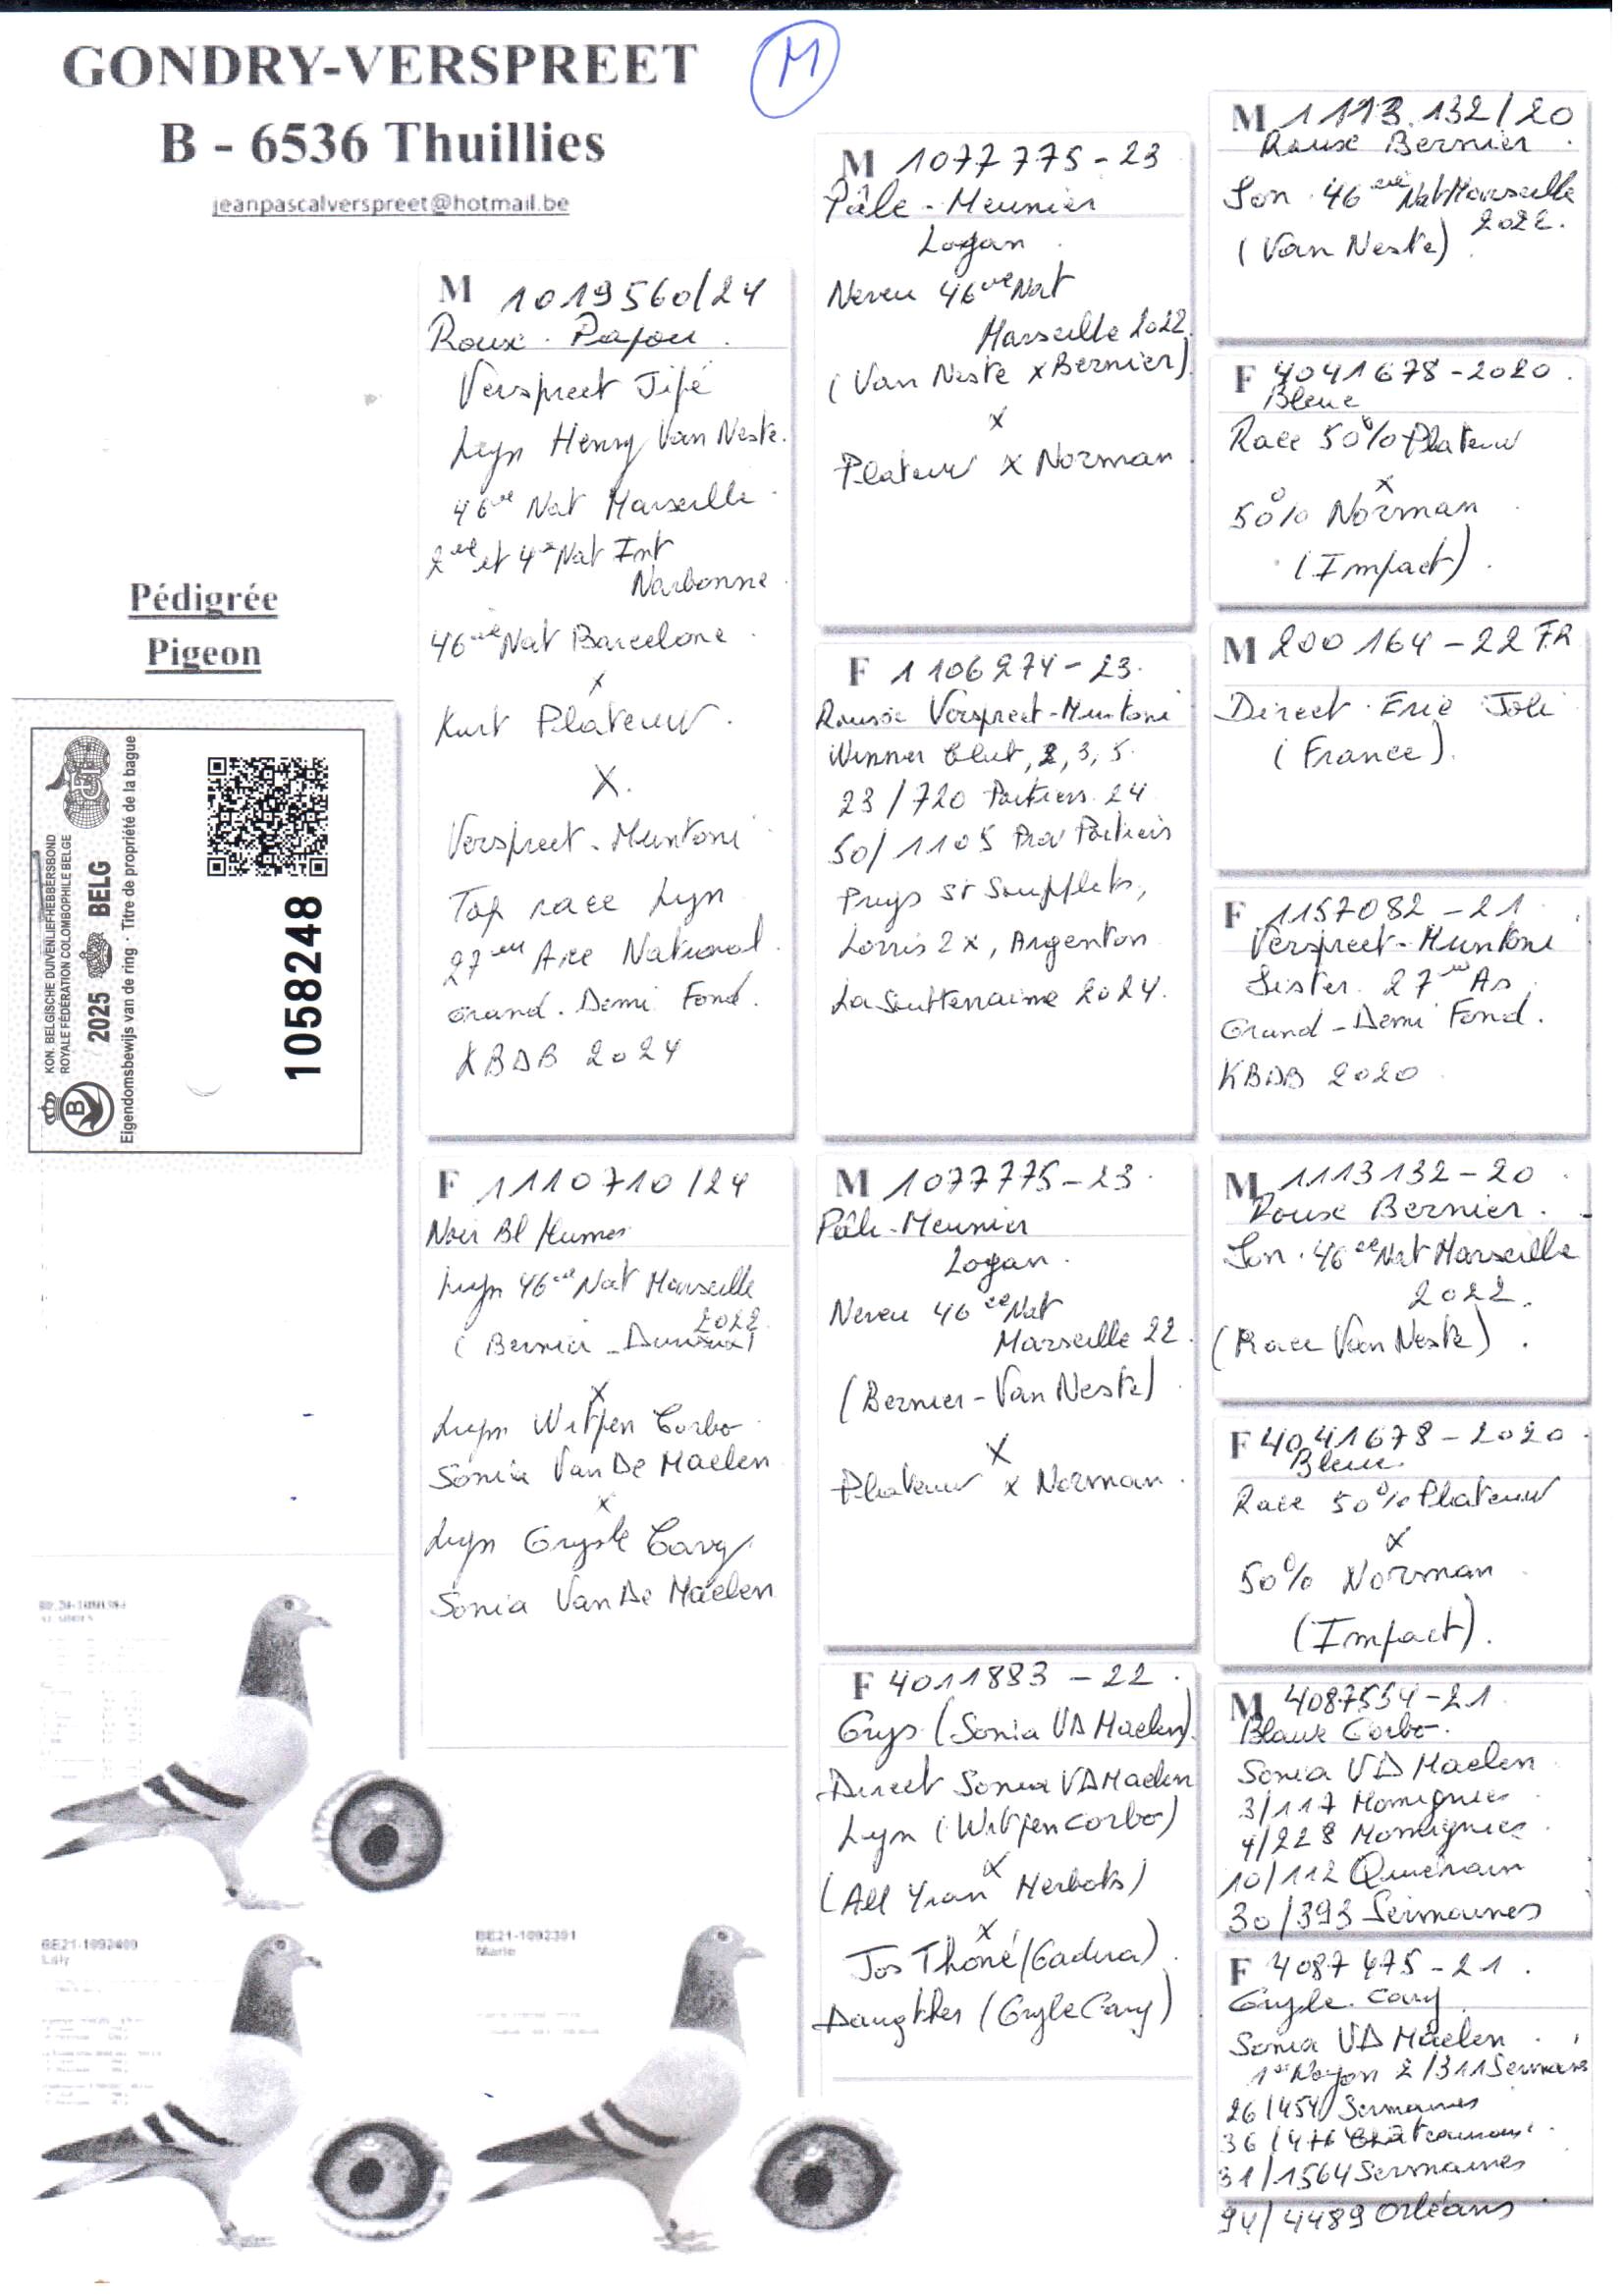 GONDRY-VERSPREET
B - 6536 Thuillies
jeanpascalverspreet@hotmail.be
M
Pédigrée
Pigeon
KON. BELGISCHE DUIVENLIEFHEBBERSBOND
ROYALE FÉDÉRATION COLOMBOPHILE BELGE
2025 BELG
Eigendomsbewijs van de ring · Titre de propriété de la bague
1058248
M 1019560/24
Roux. Papou.
Verspreet Jifé
Lyn Henry Van Neste.
46ème Nat Marseille
2ème et 4e Nat Int
Narbonne
46ème Nat Barcelone
x
Kurt Plateuw.
X.
Verspreet - Muntoni
Top race Lyn
27ème Ace National
Grand. Demi Fond.
KBDB 2024
F 1110710/24
Noir Bl Plumes
Lyn 46ème Nat Marseille
2022
(Bernier -
x
Lyn Witpen Corbo
Sonia Van De Maelen
x
Lyn Grysle Cavy
Sonia Van De Maelen
M 1077775-23
Pâle - Meunier
Logan
Neveu 46ème Nat
Marseille 2022
(Van Neste x Bernier)
x
Plateuw x Norman
F 1106274-23.
Rousse Verspreet-Muntoni
Winner Club, 2, 3, 5.
23/720 Poitiers 24
50/1105 Prov Poitiers
Prys St Soupplets,
Lorris 2x, Argenton
La Souterraine 2024.
M 1077775-23.
Pâle-Meunier
Logan.
Neveu 46ème Nat
Marseille 22.
(Bernier-Van Neste)
X
Plateuw x Norman.
F 4011883 - 22.
Grys (Sonia VD Maelen)
Direct Sonia VD Maelen
Lyn (Witpen Corbo)
x
(All Yvan Herbots)
x
Jos Thoné (Gadura).
Daughter (Grysle Cavy)
M 1113.132/20
Roux Bernier.
Son 46ème Nat Marseille
2022.
(Van Neste)
F 4041678-2020.
Bleue
Race 50% Plateuw
x
50% Norman
(Impact).
M 200164-22 FR
Direct Eric Joli
(France).
F 1157082-21
Verspreet-Muntoni
Sister 27ème As
Grand-Demi Fond.
KBDB 2020
M 1113132-20
Roux Bernier.
Son 46ème Nat Marseille
2022.
(Race Van Neste).
F 4041678-2020
Bleue
Race 50% Plateuw
x
50% Norman
(Impact).
M 4087554-21
Blauw Corbo.
Sonia VD Maelen
3/117 Momignies
4/228 Momignies
10/112 Quievrain
30/393 Sermaises
F 4087475-21.
Grysle Cavy
Sonia VD Maelen
1er Noyon 2/311 Sermaises
26/454 Sermaises
36/476 Châteauroux
31/1564 Sermaises
94/4489 Orléans
BE21-1092409
Laly
BE21-1092391
Marie